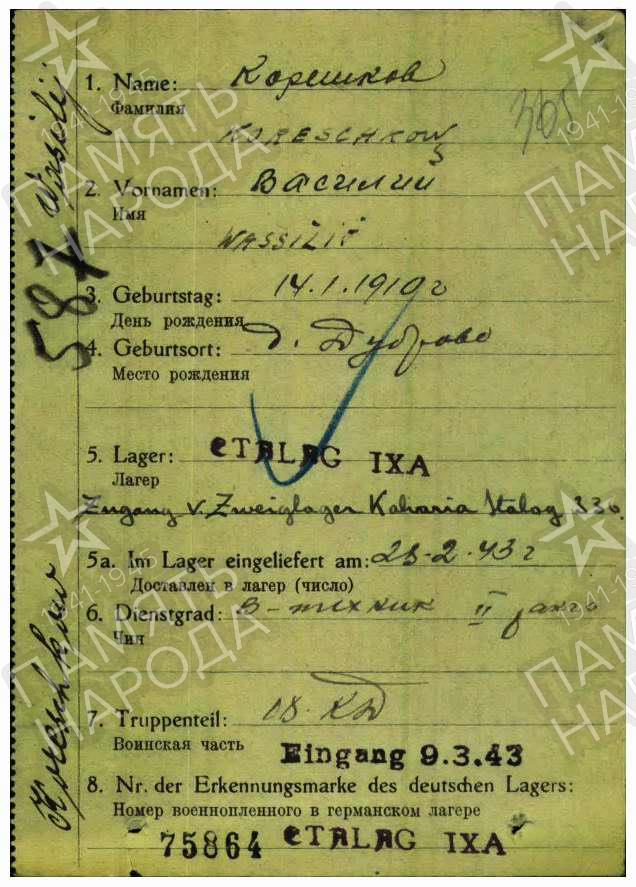 1. Name: Корешков
Фамилия
KORESCHKOW
2. Vornamen: Василий
Имя
WASSILIJ
3. Geburtstag: 14.1.1910 г
День рождения
4. Geburtsort: д. Дуброво
Место рождения
5. Lager: STALAG IXA
Лагер
Zugang v. Zweiglager Kalvaria Stalag 336
5a. Im Lager eingeliefert am: 28-2-43 г
Доставлен в лагер (число)
6. Dienstgrad: В-техник II ранга
Чин
7. Truppenteil: 18. КД
Воинская часть
Eingang 9.3.43
8. Nr. der Erkennungsmarke des deutschen Lagers:
Номер военнопленного в германском лагере
75864 STALAG IXA
Koreschkow
587
Wassilij
365
ПАМЯТЬ
НАРОДА
1941-1945
ПАМЯТЬ
НАРОДА
1941-1945